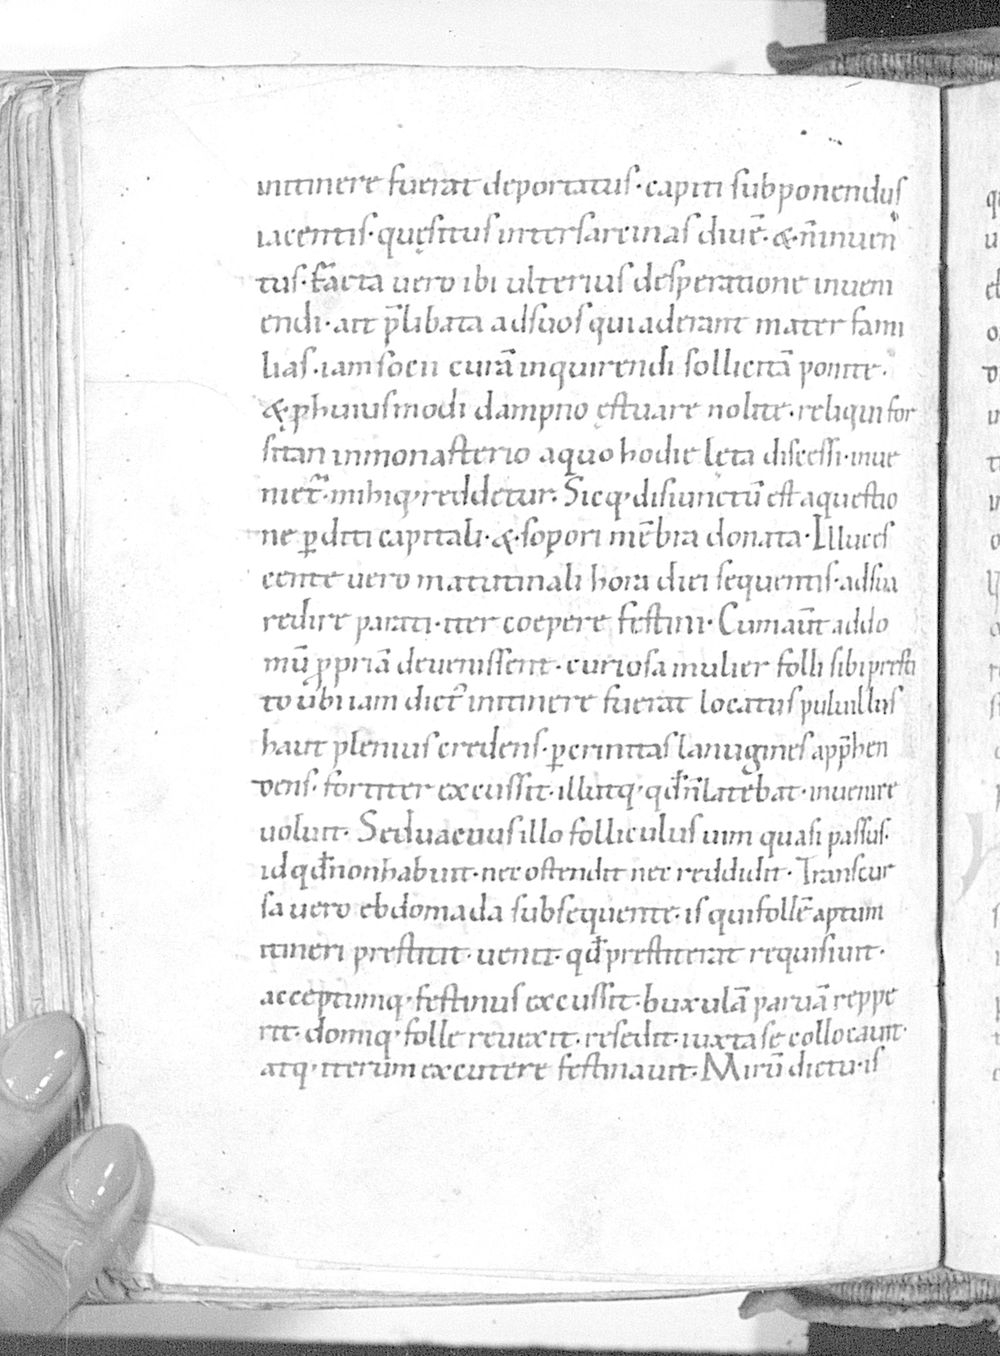 initinere fuerat deportatus · capiti subponendus
iacentis · quęsitus intersarcinas diuē · & · n̄ inuen
tus · Facta uero ibi ulterius desperatione inueni
endi · ait p̄libata adsuos quiaderant mater fami
lias · iam socii curā inquirendi sollicitā ponite ·
& · ꝓ huiusmodi dampno ęstuare nolite · reliqui for
sitan inmonasterio aquo hodie lęta discessi · inue
niet̄ · mihiq · reddetur · Sicq · disiunctū est aquestio
ne ꝑditi capitali · & · sopori mēbra donata · Illuces
cente uero matutinali hora diei sequentis · adsua
redire parati · iter coepere festini · Cum aūt addo
mū ꝓpriā deuenissent · curiosa mulier folli sibi presti
to ubi iam dict̄ initinere fuerat locatus puluillus
haut plenius credens · ꝑ crinitas lanugines app̄hen
dens · fortiter excussit · illiutq · qd̄ n̄ latebat · inuenire
uoluit · Sed uacuus illo folliculus uim quasi passus ·
id qd̄ non habuit · nec ostendit nec reddidit · Transcur
sa uero ebdomada subsequente · is qui follē aptum
itineri prestitit · uenit · qd̄ prestiterat requisiuit ·
acceptumq · festinus excussit · buxulā paruā reppe
rit · domūq · folle reuexit · resedit · iuxta se collocauit ·
atq · iterum excutere festinauit · Mirū dictu · is